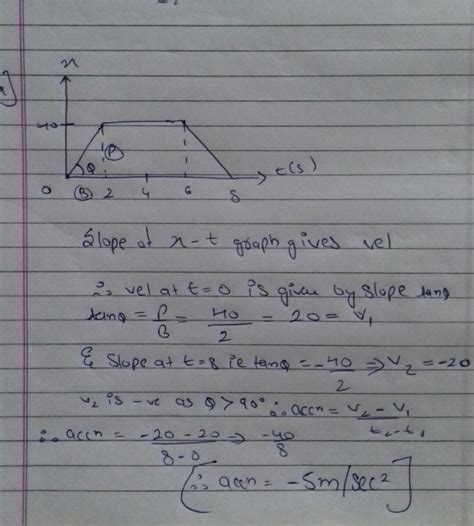 x
a]
40
P
θ
t(s)
0 B 2 4 6 8
Slope of x-t graph gives vel
∴ vel at t=0 is given by slope tanθ
tanθ = P/B = 40/2 = 20 = V₁
& Slope at t=8 ie tanθ = -40/2 ⇒ V₂ = -20
V₂ is -ve as θ > 90° ∴ accn = V₂ - V₁ / t₂ - t₁
∴ accn = -20 - 20 / 8 - 0 ⇒ -40/8
[∴ accn = -5m/sec²]